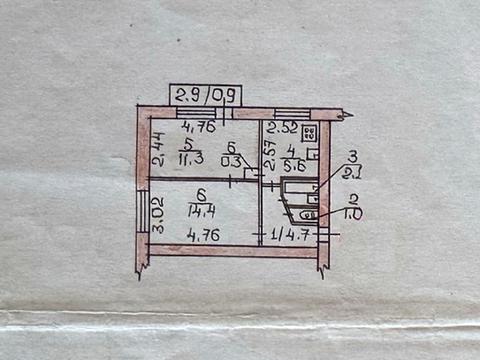 2.9/0.9
4.76
2.52
2.44
5
11.3
6
0.3
2.57
4
5.6
3
2.1
6
14.4
2
1.0
3.02
4.76
1/4.7